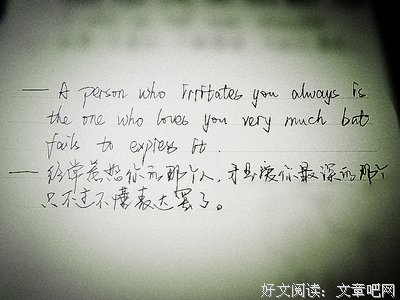 — A person who irritates you always is
the one who loves you very much but
fails to express it.
— 经常惹怒你的那个人,才是爱你最深的那个
只不过不懂表达罢了。
好文阅读：文章吧网